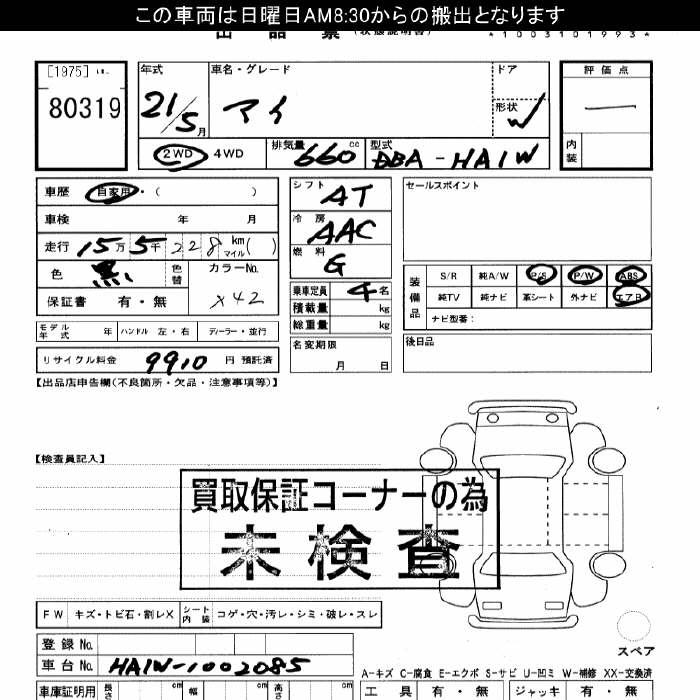 この車両は日曜日AM8:30からの搬出となります
出品票 (状態説明書) *1003101993*
[1975]
80319
年式 21/5月
車名・グレード マイ
ドア
形状
評価点 —
内装
2WD 4WD
排気量 660cc
型式 DBA-HA1W
車歴 自家用・( )
車検 年 月
走行 15万5千228km マイル( )
色 黒 色替
カラーNo. X42
保証書 有・無
シフト AT
冷房 AAC
燃料 G
乗車定員 4名
積載量 kg
総重量 kg
セールスポイント
装備品 S/R 純A/W P/S P/W ABS
純TV 純ナビ 革シート 外ナビ エアB
ナビ型番:
モデル年式 年 ハンドル 左・右 ディーラー・並行
リサイクル料金 9910 円 預託済
名変期限 月 日
後日品
【出品店申告欄(不良箇所・欠品・注意事項等)】
【検査員記入】
買取保証コーナーの為
未検査
FW キズ・トビ石・割レX シート内装 コゲ・穴・汚レ・シミ・破レ・スレ
登録No.
車台No. HA1W-1002085
スペア
A-キズ C-腐食 E-エクボ S-サビ U-凹ミ W-補修 XX-交換済
車庫証明用 長さ cm 幅 cm 高さ cm
工具 有・無 ジャッキ 有・無